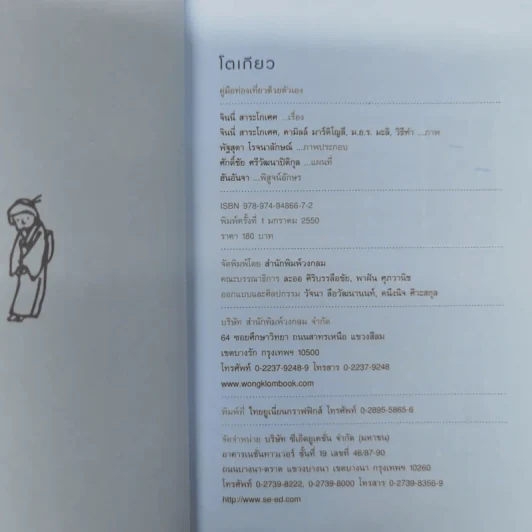 โตเกียว
คู่มือท่องเที่ยวด้วยตัวเอง
จินนี่ สาระโกเศศ ...เรื่อง
จินนี่ สาระโกเศศ, คามิลล์ มาร์ติโญลี, ม.ย.ร. มะลิ, วิธีทำ ...ภาพ
พัฐสุดา โรจนาลักษณ์ ...ภาพประกอบ
ศักดิ์ชัย ศรีวัฒนาปิติกุล ...แผนที่
ฮันอันจา ...พิสูจน์อักษร
ISBN 978-974-94866-7-2
พิมพ์ครั้งที่ 1 มกราคม 2550
ราคา 180 บาท
จัดพิมพ์โดย สำนักพิมพ์วงกลม
คณะบรรณาธิการ ละออ ศิริบรรลือชัย, พาฝัน ศุภวานิช
ออกแบบและศิลปกรรม วัจนา ลือวัฒนานนท์, คนึงนิจ ศิวะสกุล
บริษัท สำนักพิมพ์วงกลม จำกัด
64 ซอยศึกษาวิทยา ถนนสาทรเหนือ แขวงสีลม
เขตบางรัก กรุงเทพฯ 10500
โทรศัพท์ 0-2237-9248-9 โทรสาร 0-2237-9248
www.wongklombook.com
พิมพ์ที่ ไทยยูเนี่ยนกราฟฟิกส์ โทรศัพท์ 0-2895-5865-6
จัดจำหน่าย บริษัท ซีเอ็ดยูเคชั่น จำกัด (มหาชน)
อาคารเนชั่นทาวเวอร์ ชั้นที่ 19 เลขที่ 46/87-90
ถนนบางนา-ตราด แขวงบางนา เขตบางนา กรุงเทพฯ 10260
โทรศัพท์ 0-2739-8222, 0-2739-8000 โทรสาร 0-2739-8356-9
http://www.se-ed.com